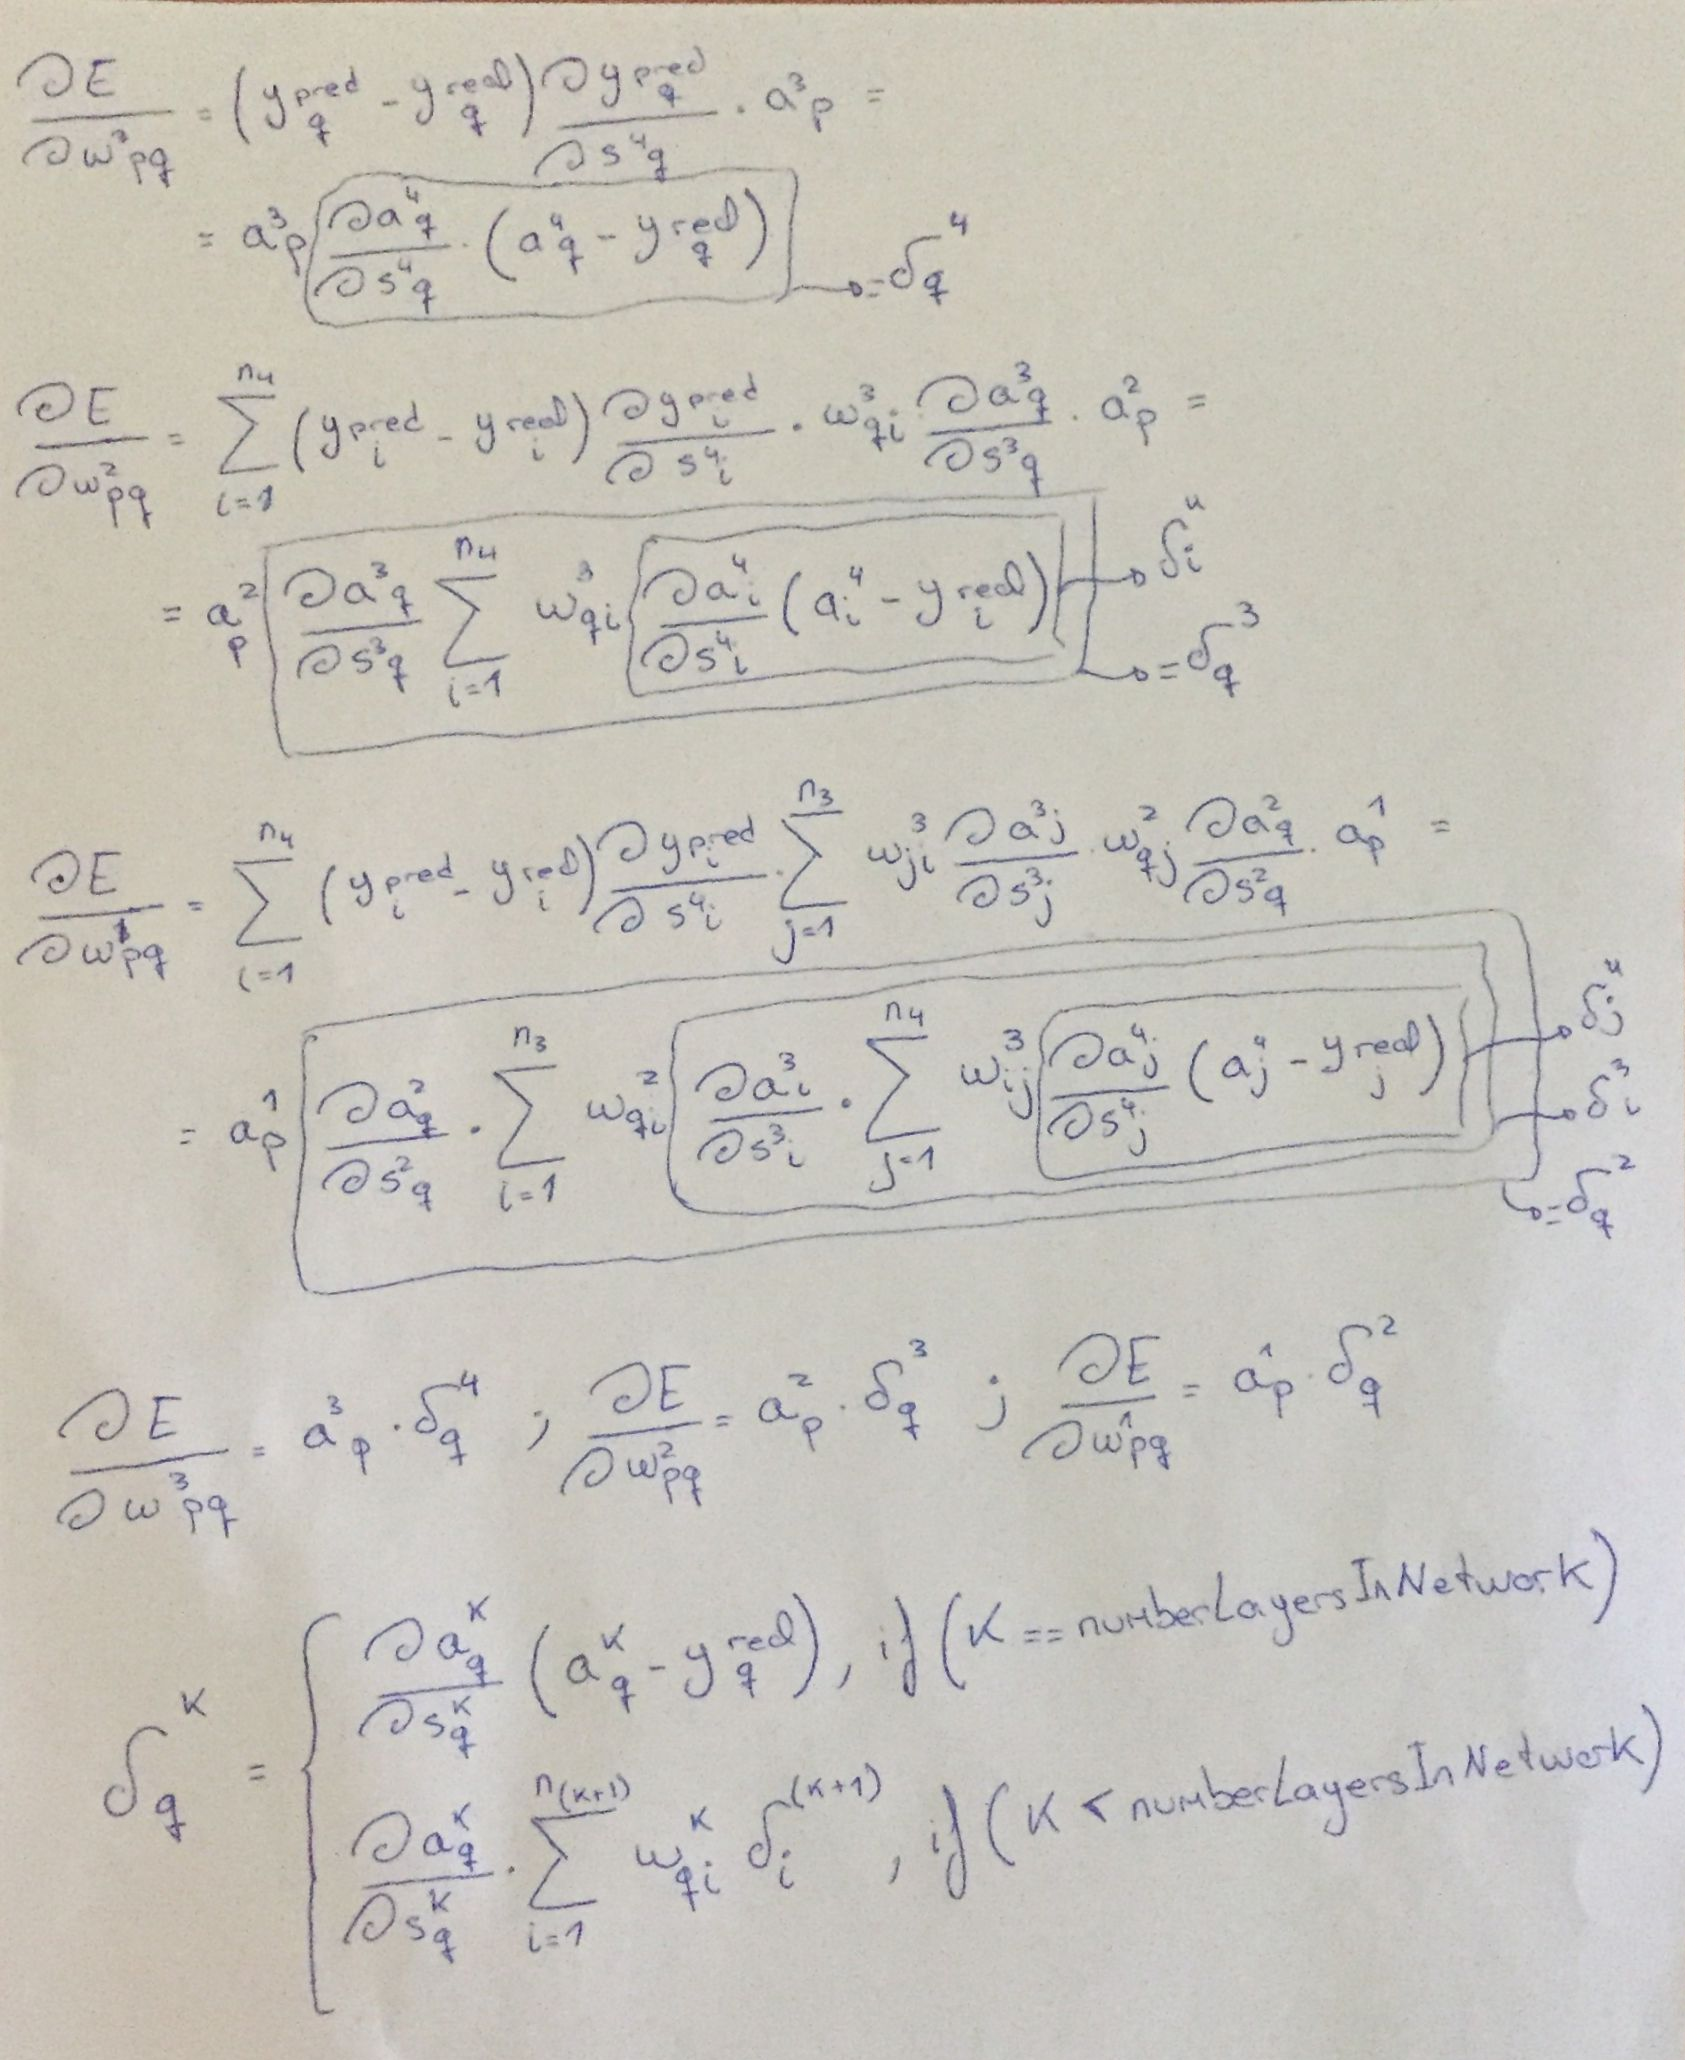 ∂E/∂w³pq = (y^pred_q - y^real_q) ∂y^pred_q/∂s⁴q · a³p =
= a³p ∂a⁴q/∂s⁴q · (a⁴q - y^real_q) → = δ⁴q
∂E/∂w²pq = Σ_{i=1}^{n4} (y^pred_i - y^real_i) ∂y^pred_i/∂s⁴i · w³qi · ∂a³q/∂s³q · a²p =
= a²p ∂a³q/∂s³q Σ_{i=1}^{n4} w³qi ∂a⁴i/∂s⁴i (a⁴i - y^real_i) → δ⁴i → = δ³q
∂E/∂w¹pq = Σ_{i=1}^{n4} (y^pred_i - y^real_i) ∂y^pred_i/∂s⁴i · Σ_{j=1}^{n3} w³ji ∂a³j/∂s³j · w²qj ∂a²q/∂s²q · a¹p =
= a¹p ∂a²q/∂s²q · Σ_{i=1}^{n3} w²qi ∂a³i/∂s³i · Σ_{j=1}^{n4} w³ij ∂a⁴j/∂s⁴j (a⁴j - y^real_j) → δ⁴j → δ³i → = δ²q
∂E/∂w³pq = a³p · δ⁴q ; ∂E/∂w²pq = a²p · δ³q ; ∂E/∂w¹pq = a¹p · δ²q
δ^K_q = { ∂a^K_q/∂s^K_q (a^K_q - y^real_q), if (K == numberLayersInNetwork)
∂a^K_q/∂s^K_q · Σ_{i=1}^{n(K+1)} w^K_qi δ^(K+1)_i , if (K < numberLayersInNetwork)